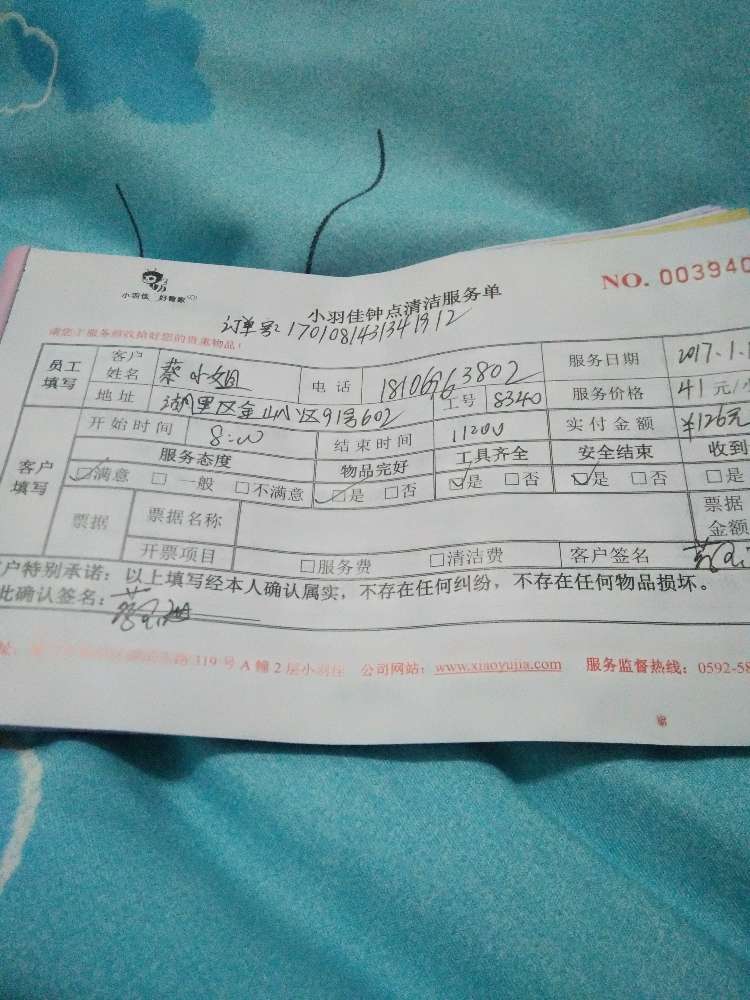 小羽佳 好管家
小羽佳钟点清洁服务单
NO. 003940
订单号:
请您于服务前收拾好您的贵重物品!
员工填写 客户姓名 蔡小姐 电话 服务日期 2017.1.1
地址 湖里区金山小区91号602 工号 8340 服务价格 41元/
开始时间 8:00 结束时间 实付金额 ¥126元
客户填写 服务态度 物品完好 工具齐全 安全结束 收到
☑满意 □一般 □不满意 ☑是 □否 ☑是 □否 ☑是 □否 □是
票据 票据名称 票据金额
开票项目 □服务费 □清洁费 客户签名
户特别承诺:以上填写经本人确认属实,不存在任何纠纷,不存在任何物品损坏。
此确认签名:
319号A幢2层小羽佳 公司网站:www.xiaoyujia.com 服务监督热线:0592-58